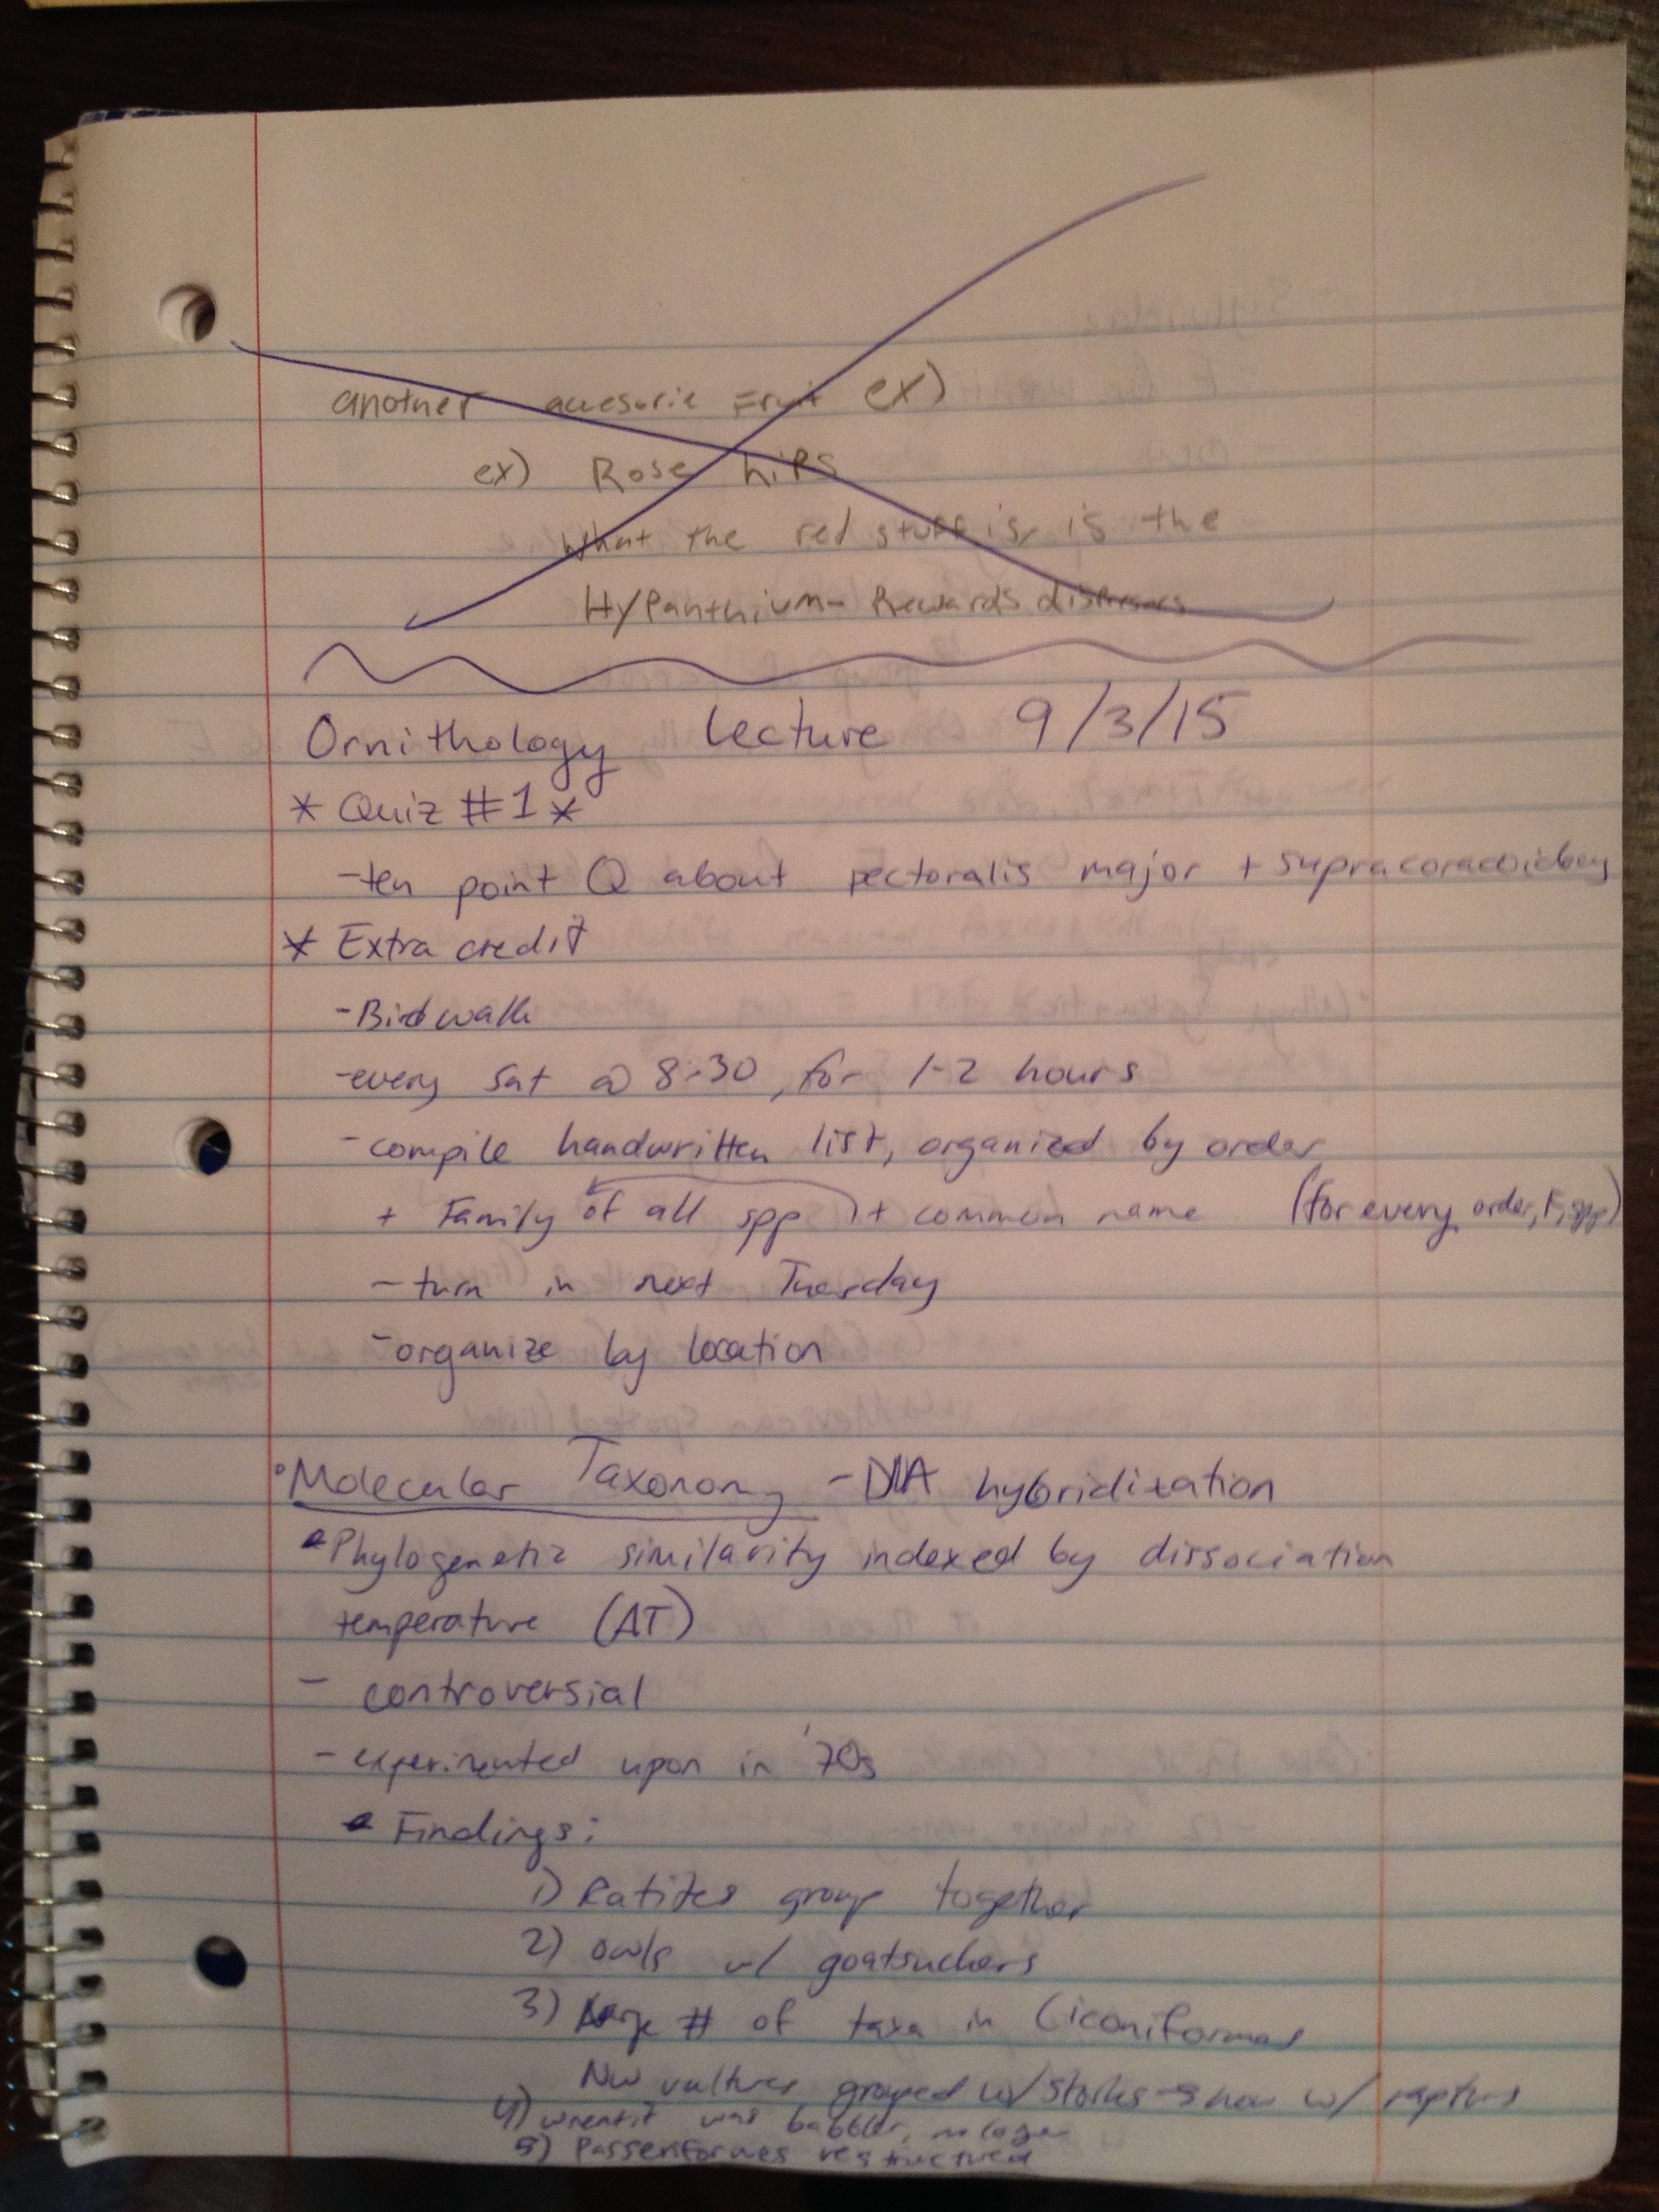 another accesorie Fruit ex)
ex) Rose hips
What the red stuff is, is the
Hypanthium- Rewards dispersors
Ornithology Lecture 9/3/15
* Quiz #1 *
-ten point Q about pectoralis major + supracoracoideus
* Extra credit
- Bird walk
-every Sat @ 8:30, for 1-2 hours
-compile handwritten list, organized by order
+ Family of all spp + common name (for every order, F, spp)
- turn in next Tuesday
- organize by location
• Molecular Taxonomy - DNA hybridization
• Phylogenetic similarity indexed by dissociation
temperature (ΔT)
- controversial
- experimented upon in '70s
• Findings:
1) Ratites group together
2) owls w/ goatsuckers
3) large # of taxa in Ciconiformes
NW vultures grouped w/ storks → now w/ raptors
4) wrentit was babbler, no longer
5) Passeriformes restructured